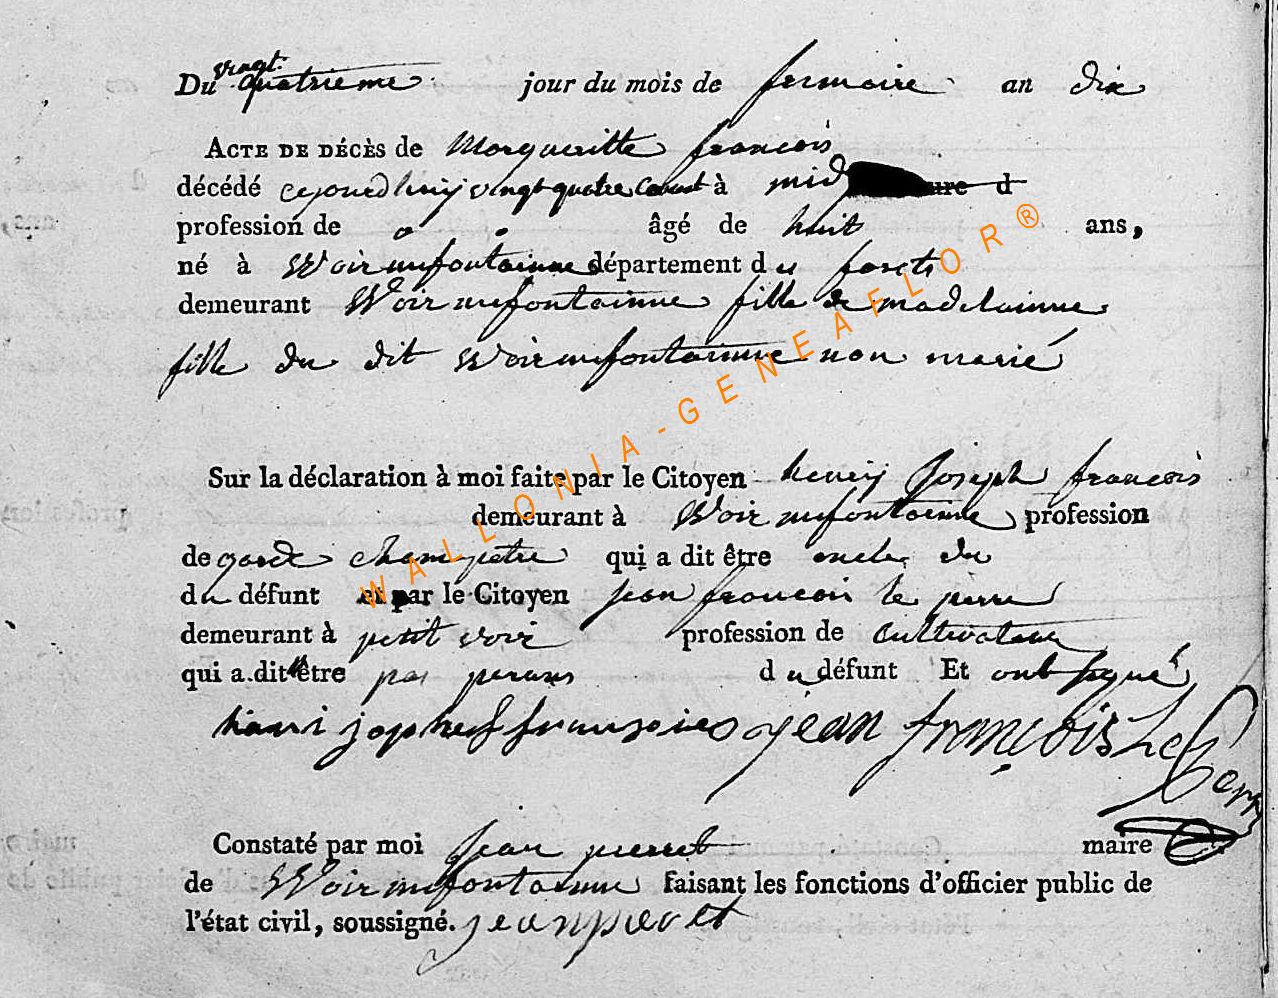 Du vingt quatrieme jour du mois de frimaire an dix
ACTE DE DÉCÈS de Margueritte francois
décédé cejourdhuij vingt quatre Court à midy heure d
profession de âgé de huit ans,
né à Woirmifontainne département du forets
demeurant Woirmifontainne fille de madelainne
fille du dit Woirmifontainne non marié
Sur la déclaration à moi faite par le Citoyen henrij Joseph francois
demeurant à Woirmifontainne profession
de garde champetre qui a dit être oncle du
du défunt et par le Citoyen jean francois le pierre
demeurant à petit voir profession de cultivateur
qui a dit être pas parans du défunt Et ont signé
hanri jopheuf fransoies jean françois Le
Constaté par moi Jean pierret maire
de Woirmifontainne faisant les fonctions d'officier public de
l'état civil, soussigné. jean pieret
WALLONIA-GENEAFLOR®